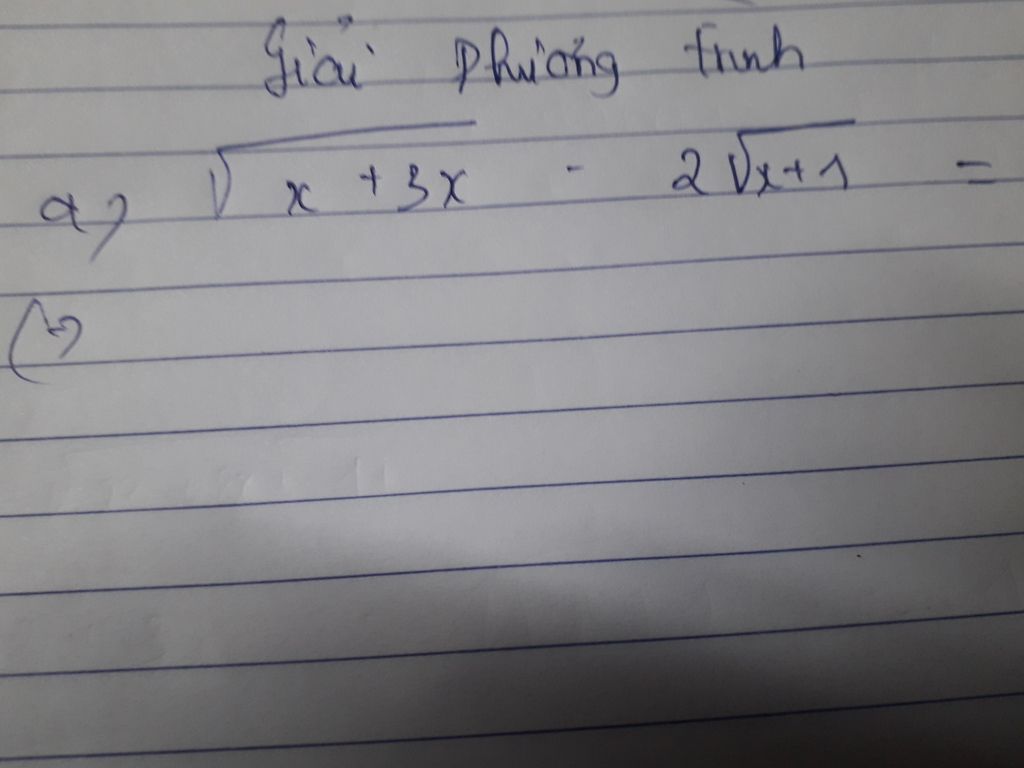 Giải phương trình
a) √(x + 3x) - 2√(x+1) =